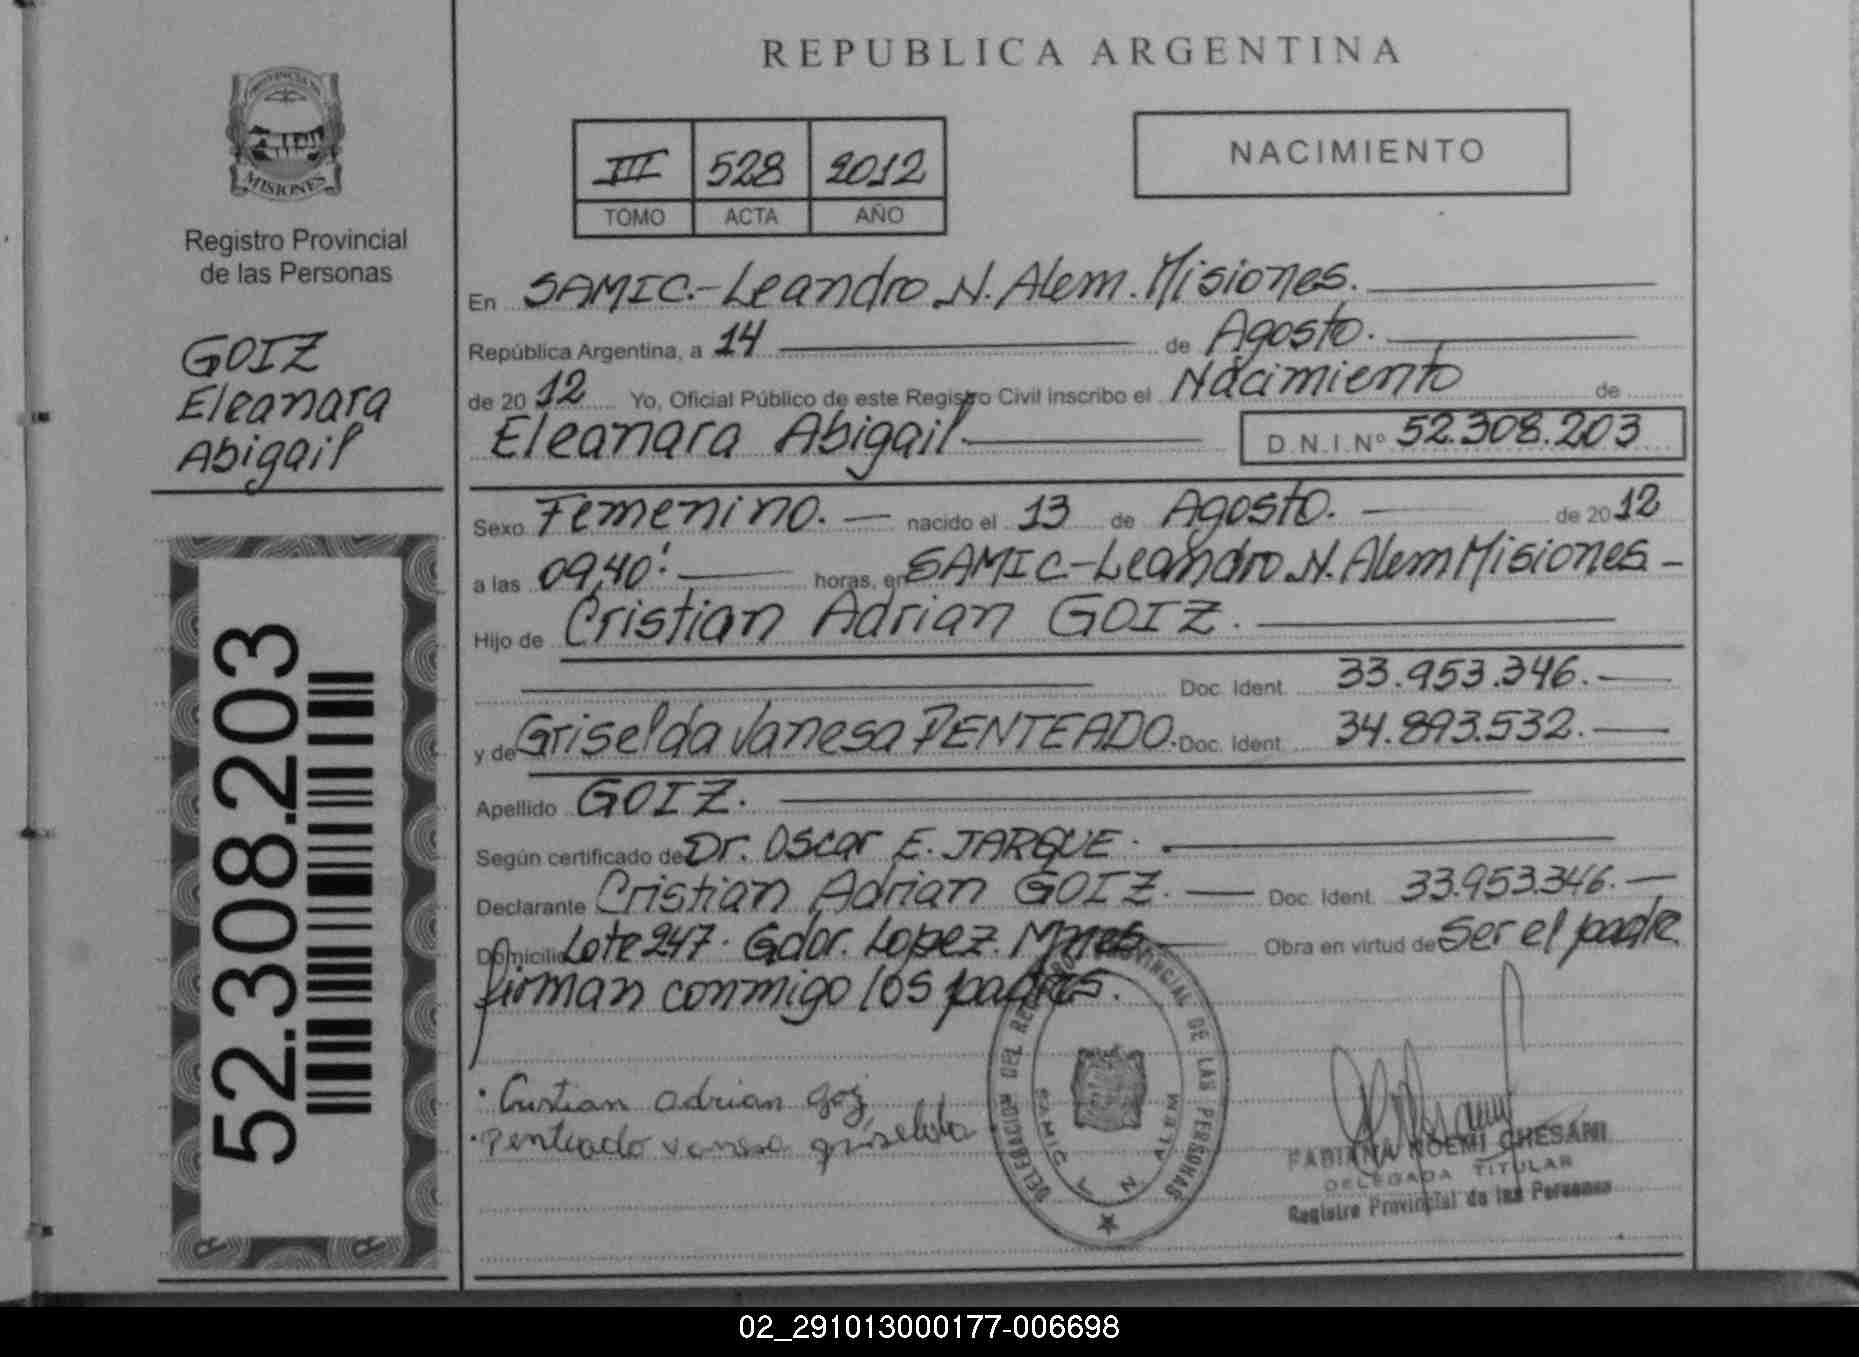 REPUBLICA ARGENTINA
PROVINCIA DE
MISIONES
Registro Provincial
de las Personas
GOIZ
Eleanara
Abigail
52.308.203
III 528 2012
TOMO ACTA AÑO
NACIMIENTO
En SAMIC.-Leandro N. Alem. Misiones.
República Argentina, a 14 de Agosto.
de 2012 Yo, Oficial Público de este Registro Civil inscribo el Nacimiento de
Eleanara Abigail. D.N.I.Nº 52.308.203
Sexo Femenino. nacido el 13 de Agosto. de 2012
a las 09,40' horas, en SAMIC-Leandro N. Alem Misiones
Hijo de Cristian Adrian GOIZ.
Doc. Ident. 33.953.346.
y de Griselda Vanesa PENTEADO. Doc. Ident. 34.893.532.
Apellido GOIZ.
Según certificado de Dr. Oscar E. JARQUE.
Declarante Cristian Adrian GOIZ. Doc. Ident. 33.953.346.
Domicilio Lote 247. Gdor. Lopez. Mnes. Obra en virtud de Ser el padre
firman conmigo los padres.
Cristian adrian goiz
penteado vanesa griselda
DELEGACION DEL REGISTRO PROVINCIAL DE LAS PERSONAS
SAMIC L N ALEM
FABIANA NOEMI CHESANI
DELEGADA TITULAR
Registro Provincial de las Personas
02_291013000177-006698